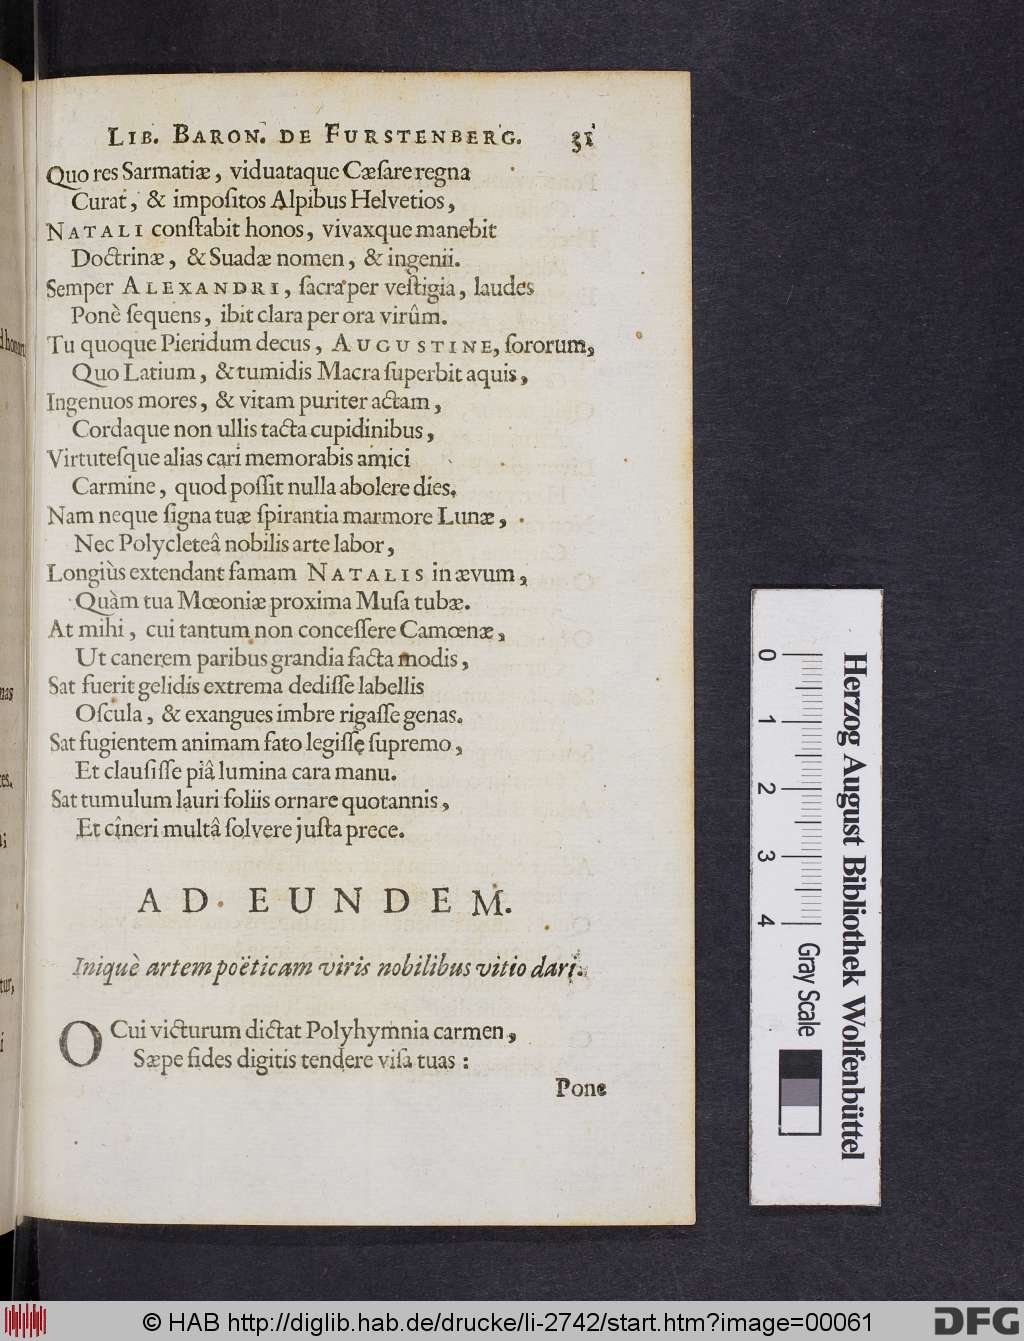 LIB. BARON. DE FURSTENBERG. 31
Quo res Sarmatiæ, viduataque Cæſare regna
Curat, & impoſitos Alpibus Helvetios,
NATALI conſtabit honos, vivaxque manebit
Doctrinæ, & Suadæ nomen, & ingenii.
Semper ALEXANDRI, ſacra per veſtigia, laudes
Ponè ſequens, ibit clara per ora virûm.
Tu quoque Pieridum decus, AUGUSTINE, ſororum,
Quo Latium, & tumidis Macra ſuperbit aquis,
Ingenuos mores, & vitam puriter actam,
Cordaque non ullis tacta cupidinibus,
Virtuteſque alias cari memorabis amici
Carmine, quod poſſit nulla abolere dies.
Nam neque ſigna tuæ ſpirantia marmore Lunæ,
Nec Polycleteâ nobilis arte labor,
Longiùs extendant famam NATALIS in ævum,
Quàm tua Mœoniæ proxima Muſa tubæ.
At mihi, cui tantum non conceſſere Camœnæ,
Ut canerem paribus grandia facta modis,
Sat fuerit gelidis extrema dediſſe labellis
Oſcula, & exangues imbre rigaſſe genas.
Sat fugientem animam fato legiſſe ſupremo,
Et clauſiſſe piâ lumina cara manu.
Sat tumulum lauri foliis ornare quotannis,
Et cineri multâ ſolvere juſta prece.
AD EUNDEM.
Iniquè artem poëticam viris nobilibus vitio dari.
O Cui victurum dictat Polyhymnia carmen,
Sæpe fides digitis tendere viſa tuas :
Pone
0 1 2 3 4
Gray Scale
Herzog August Bibliothek Wolfenbüttel
© HAB http://diglib.hab.de/drucke/li-2742/start.htm?image=00061
DFG